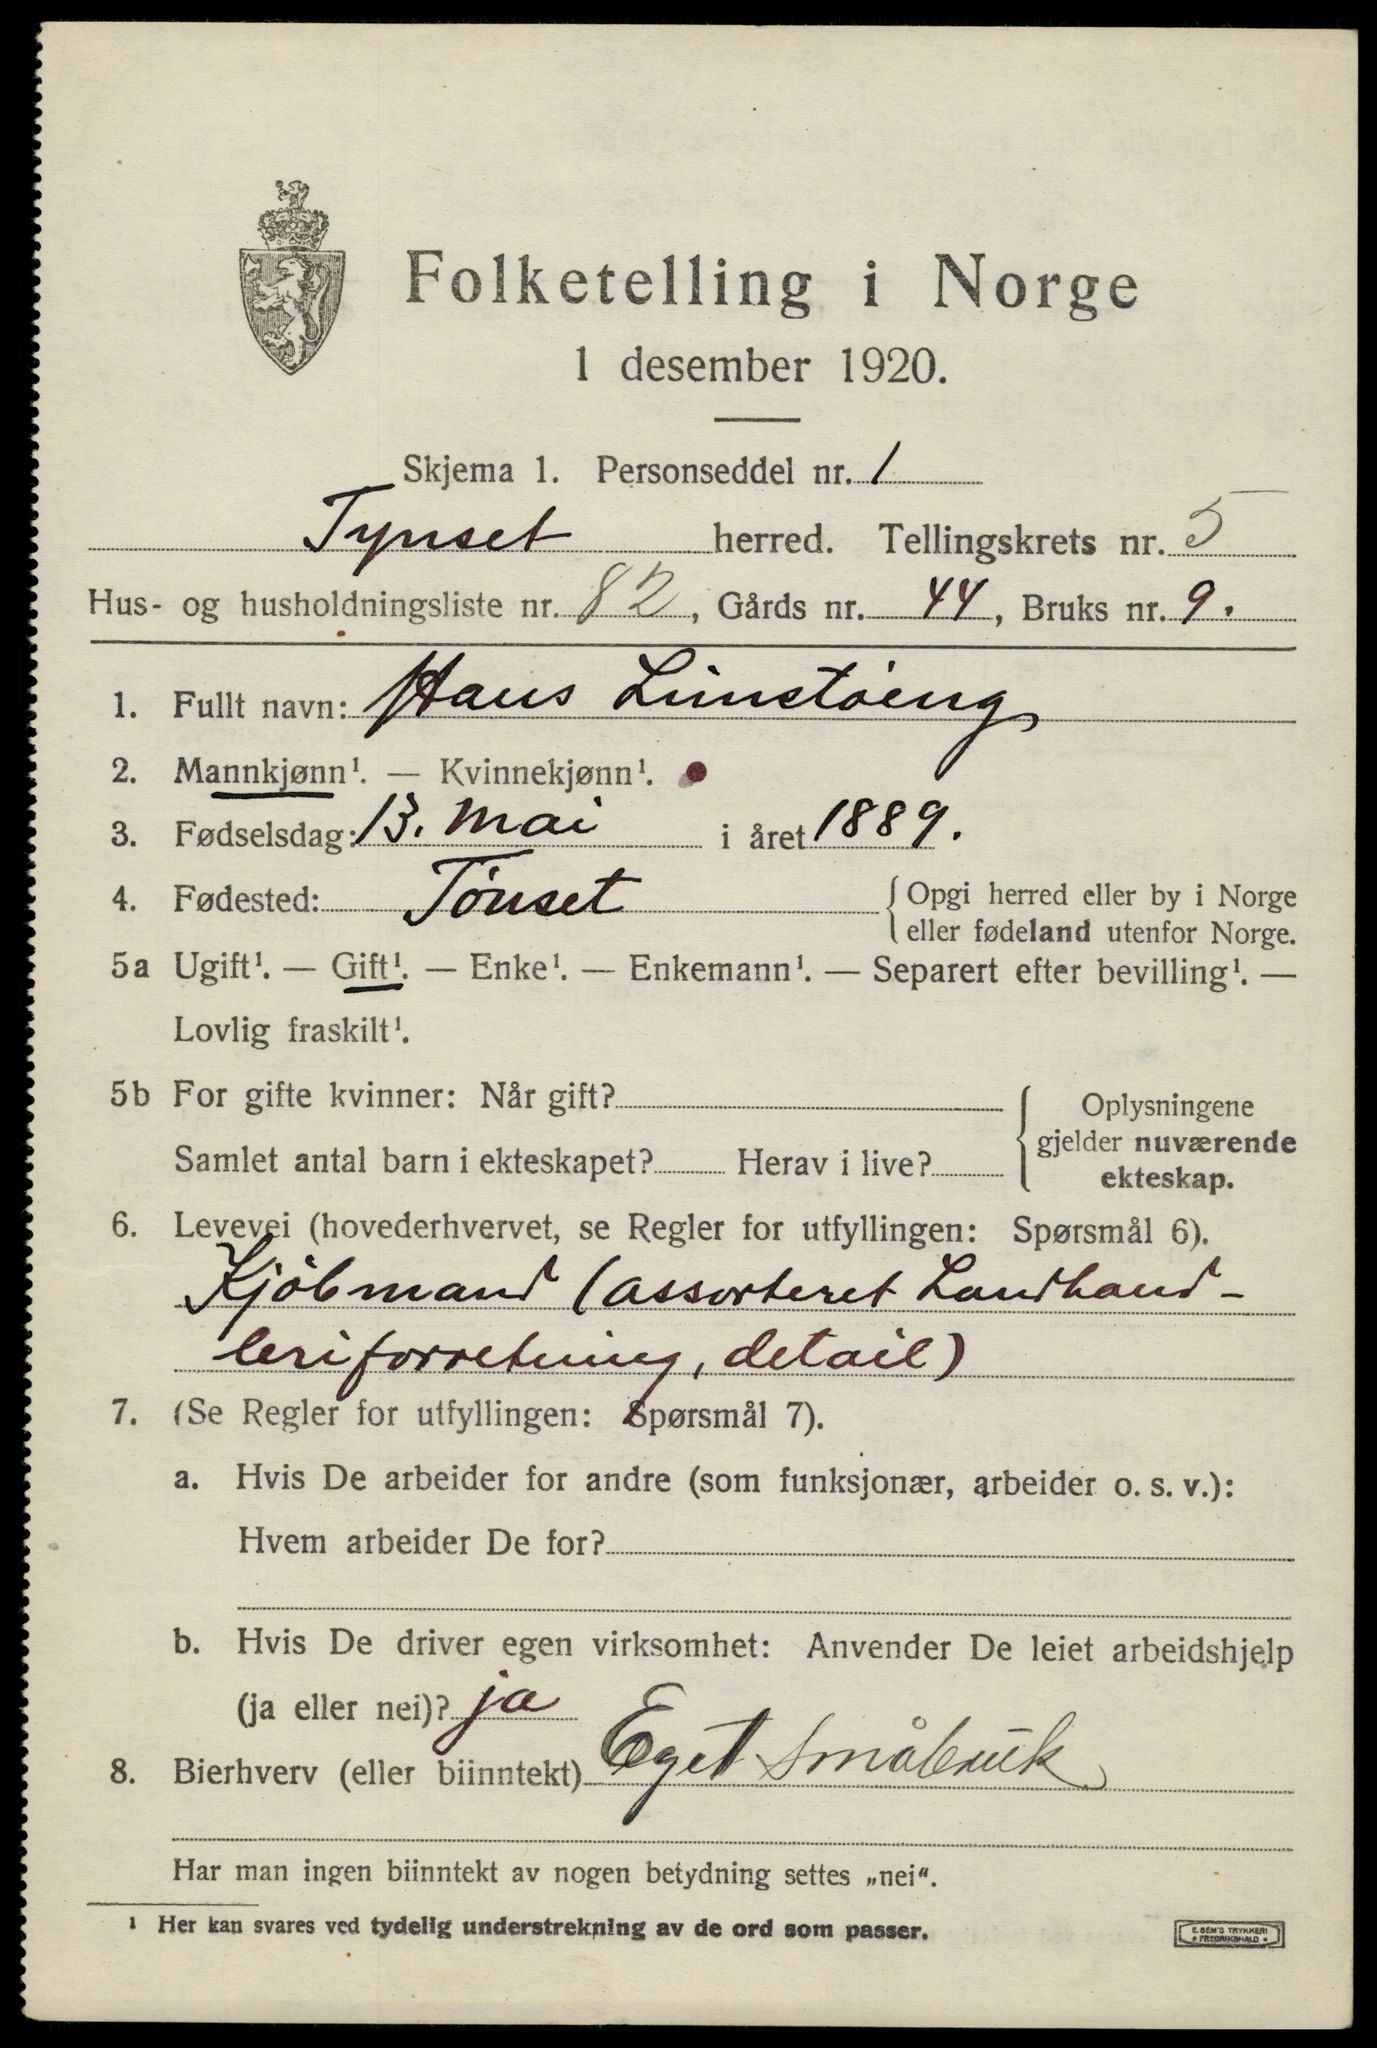 Folketelling i Norge
1 desember 1920.
Skjema 1. Personseddel nr. 1
Tynset herred. Tellingskrets nr. 5
Hus- og husholdningsliste nr. 82, Gårds nr. 44, Bruks nr. 9.
1. Fullt navn: Hans Linstøeng
2. Mannkjønn¹. — Kvinnekjønn¹.
3. Fødselsdag: 13. Mai i året 1889.
4. Fødested: Tønset { Opgi herred eller by i Norge
eller fødeland utenfor Norge.
5a Ugift¹. — Gift¹. — Enke¹. — Enkemann¹. — Separert efter bevilling¹. —
Lovlig fraskilt¹.
5b For gifte kvinner: Når gift?
Samlet antal barn i ekteskapet? Herav i live?
{ Oplysningene
gjelder nuværende
ekteskap.
6. Levevei (hovederhvervet, se Regler for utfyllingen: Spørsmål 6).
Kjøbmand (assorteret Landhand-
leriforretning, detail)
7. (Se Regler for utfyllingen: Spørsmål 7).
a. Hvis De arbeider for andre (som funksjonær, arbeider o. s. v.):
Hvem arbeider De for?
b. Hvis De driver egen virksomhet: Anvender De leiet arbeidshjelp
(ja eller nei)? ja
8. Bierhverv (eller biinntekt) Eget småbruk
Har man ingen biinntekt av nogen betydning settes „nei“.
¹ Her kan svares ved tydelig understrekning av de ord som passer.
E. SEM'S TRYKKERI
FREDRIKSHALD